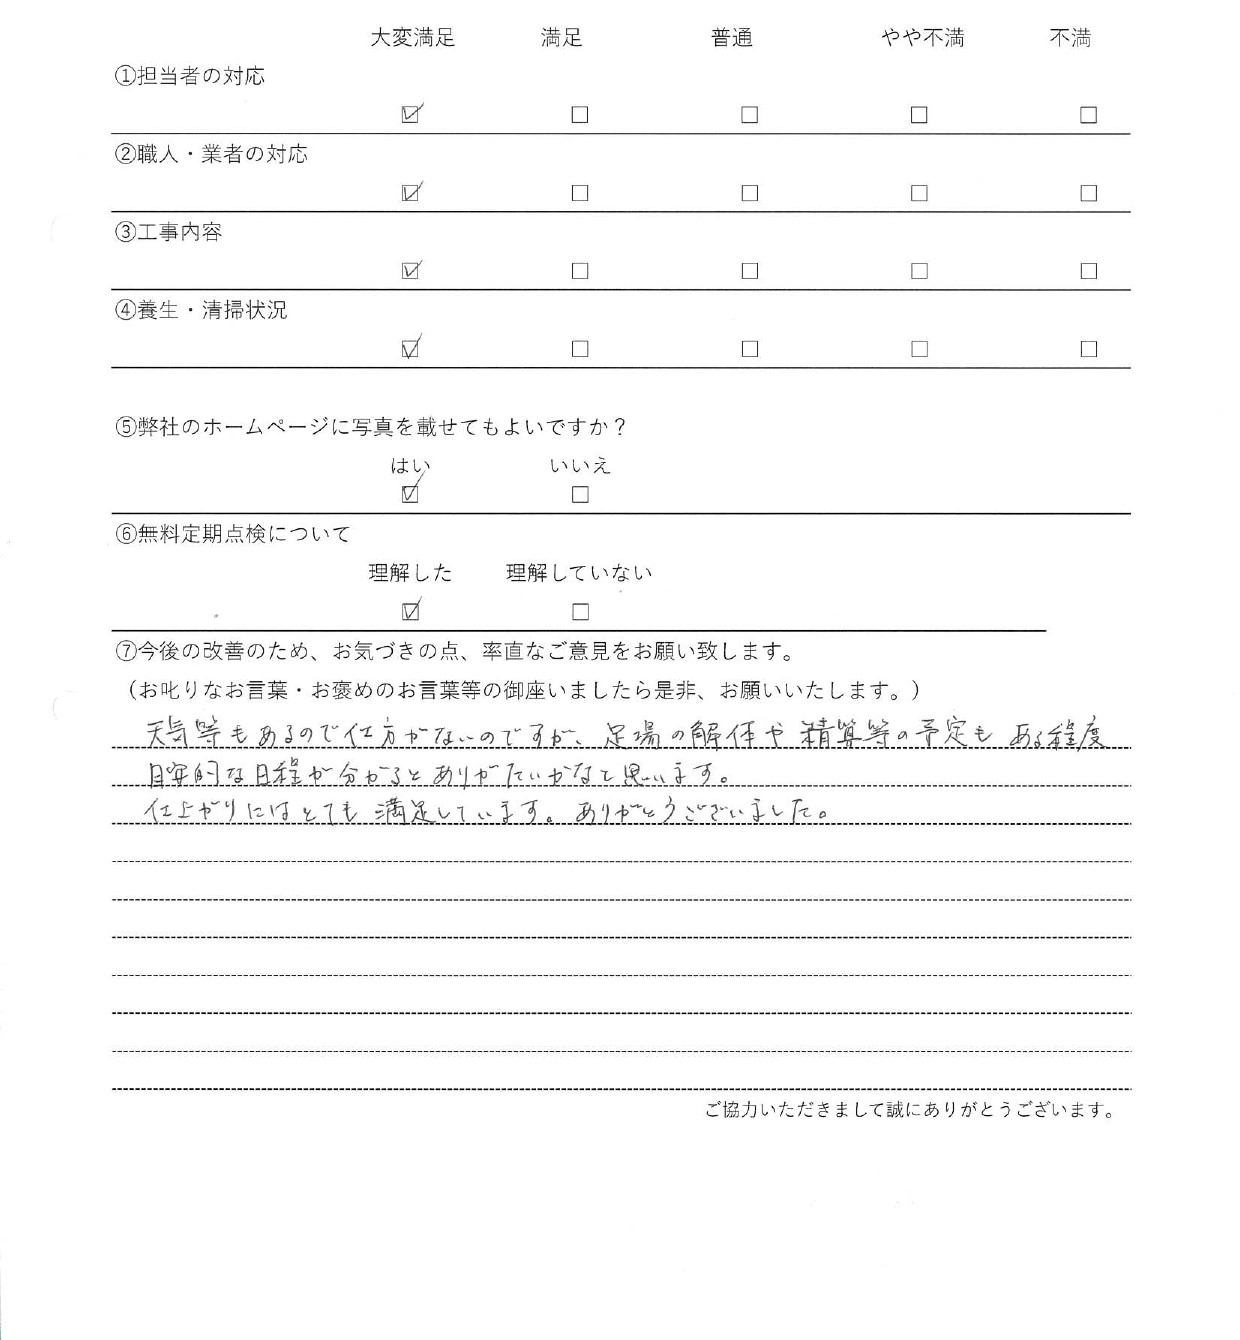 大変満足 満足 普通 やや不満 不満
①担当者の対応
☑ ☐ ☐ ☐ ☐
②職人・業者の対応
☑ ☐ ☐ ☐ ☐
③工事内容
☑ ☐ ☐ ☐ ☐
④養生・清掃状況
☑ ☐ ☐ ☐ ☐
⑤弊社のホームページに写真を載せてもよいですか？
はい いいえ
☑ ☐
⑥無料定期点検について
理解した 理解していない
☑ ☐
⑦今後の改善のため、お気づきの点、率直なご意見をお願い致します。
（お叱りなお言葉・お褒めのお言葉等の御座いましたら是非、お願いいたします。）
天気等もあるので仕方がないのですが、足場の解体や精算等の予定もある程度
目安的な日程が分かるとありがたいかなと思います。
仕上がりにはとても満足しています。ありがとうございました。
ご協力いただきまして誠にありがとうございます。